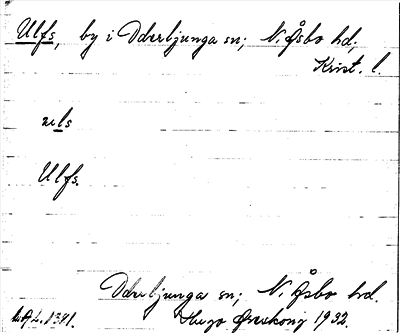 Ulfs, by i Oderljunga sn; N. Åsbo hd;
Krist. l.
uls
Ulfs.
Oderljunga sn; N. Åsbo hd.
Hugo Areskoug 1932.